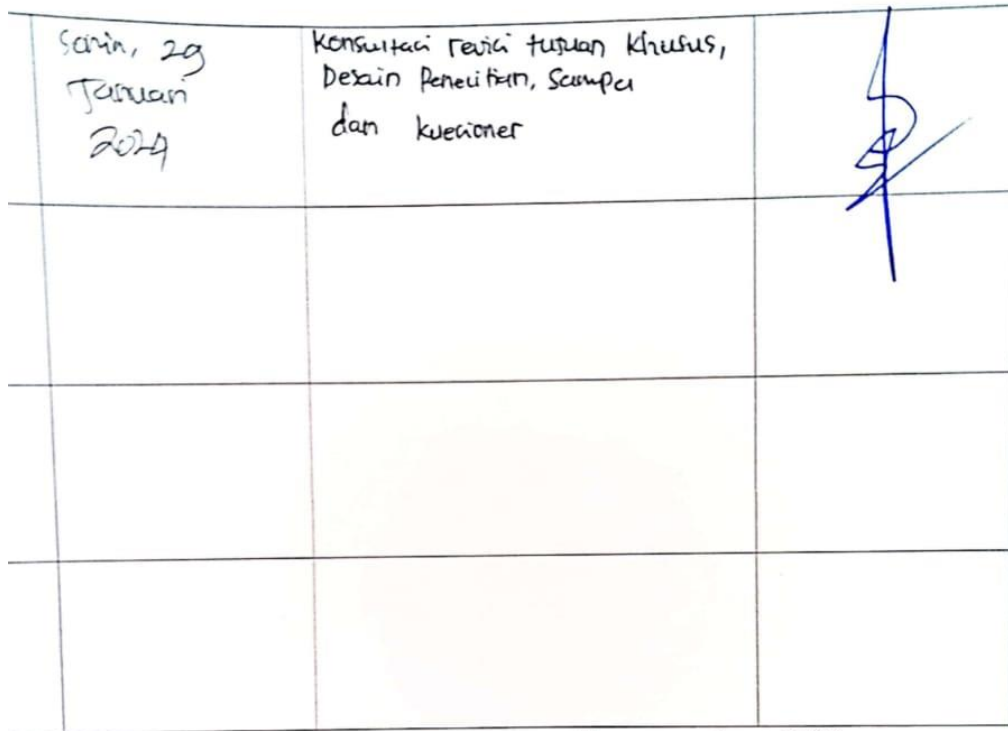 Senin, 29
Januari
2024
Konsultasi revisi tujuan Khusus,
Desain Penelitian, Sampel
dan kuesioner